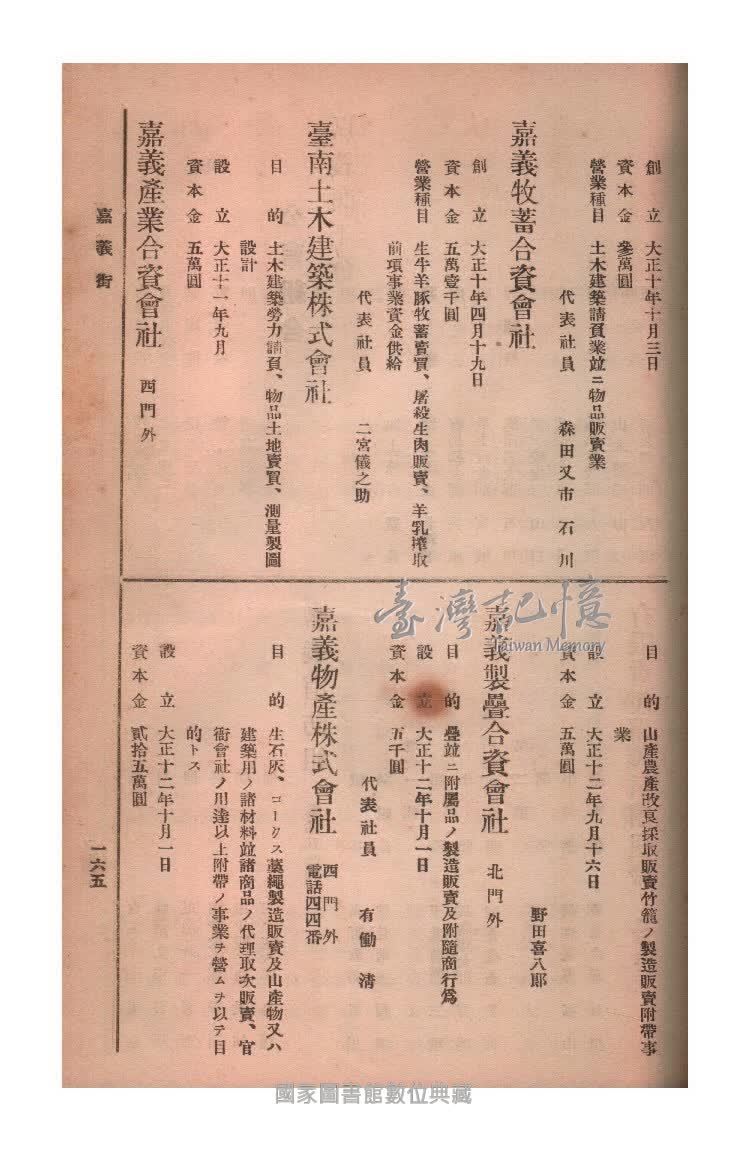 創立 大正十年十月三日
資本金 參萬圓
營業種目 土木建築請負業竝ニ物品販賣業
代表社員 森田又市 石川
嘉義牧蓄合資會社
創立 大正十年四月十九日
資本金 五萬壹千圓
營業種目 生牛羊豚牧蓄賣買、屠殺生肉販賣、羊乳搾取
前項事業資金供給
代表社員 二宮儀之助
臺南土木建築株式會社
目的 土木建築勞力請負、物品土地賣買、測量製圖
設計
設立 大正十一年九月
資本金 五萬圓
嘉義產業合資會社 西門外
目的 山產農產改良採取販賣竹籠ノ製造販賣附帶事
業
設立 大正十二年九月十六日
資本金 五萬圓
野田喜八郎
嘉義製疊合資會社 北門外
目的 疊竝ニ附屬品ノ製造販賣及附隨商行爲
設立 大正十二年十月一日
資本金 五千圓
代表社員 有働清
嘉義物產株式會社 西門外
電話四四番
目的 生石灰、コークス藁繩製造販賣及山產物又ハ
建築用ノ諸材料竝諸商品ノ代理取次販賣、官
衙會社ノ用達以上附帶ノ事業ヲ營ムヲ以テ目
的トス
設立 大正十二年十月一日
資本金 貳拾五萬圓
嘉義街
一六五
臺灣記憶
Taiwan Memory
國家圖書館數位典藏